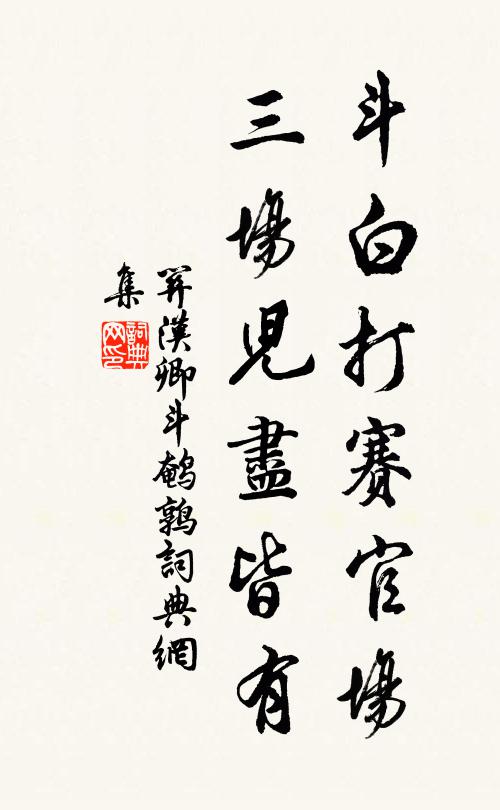 斗白打賽官場
三場兒盡皆有
關漢卿斗鵪鶉詞典網
集
詞典网印